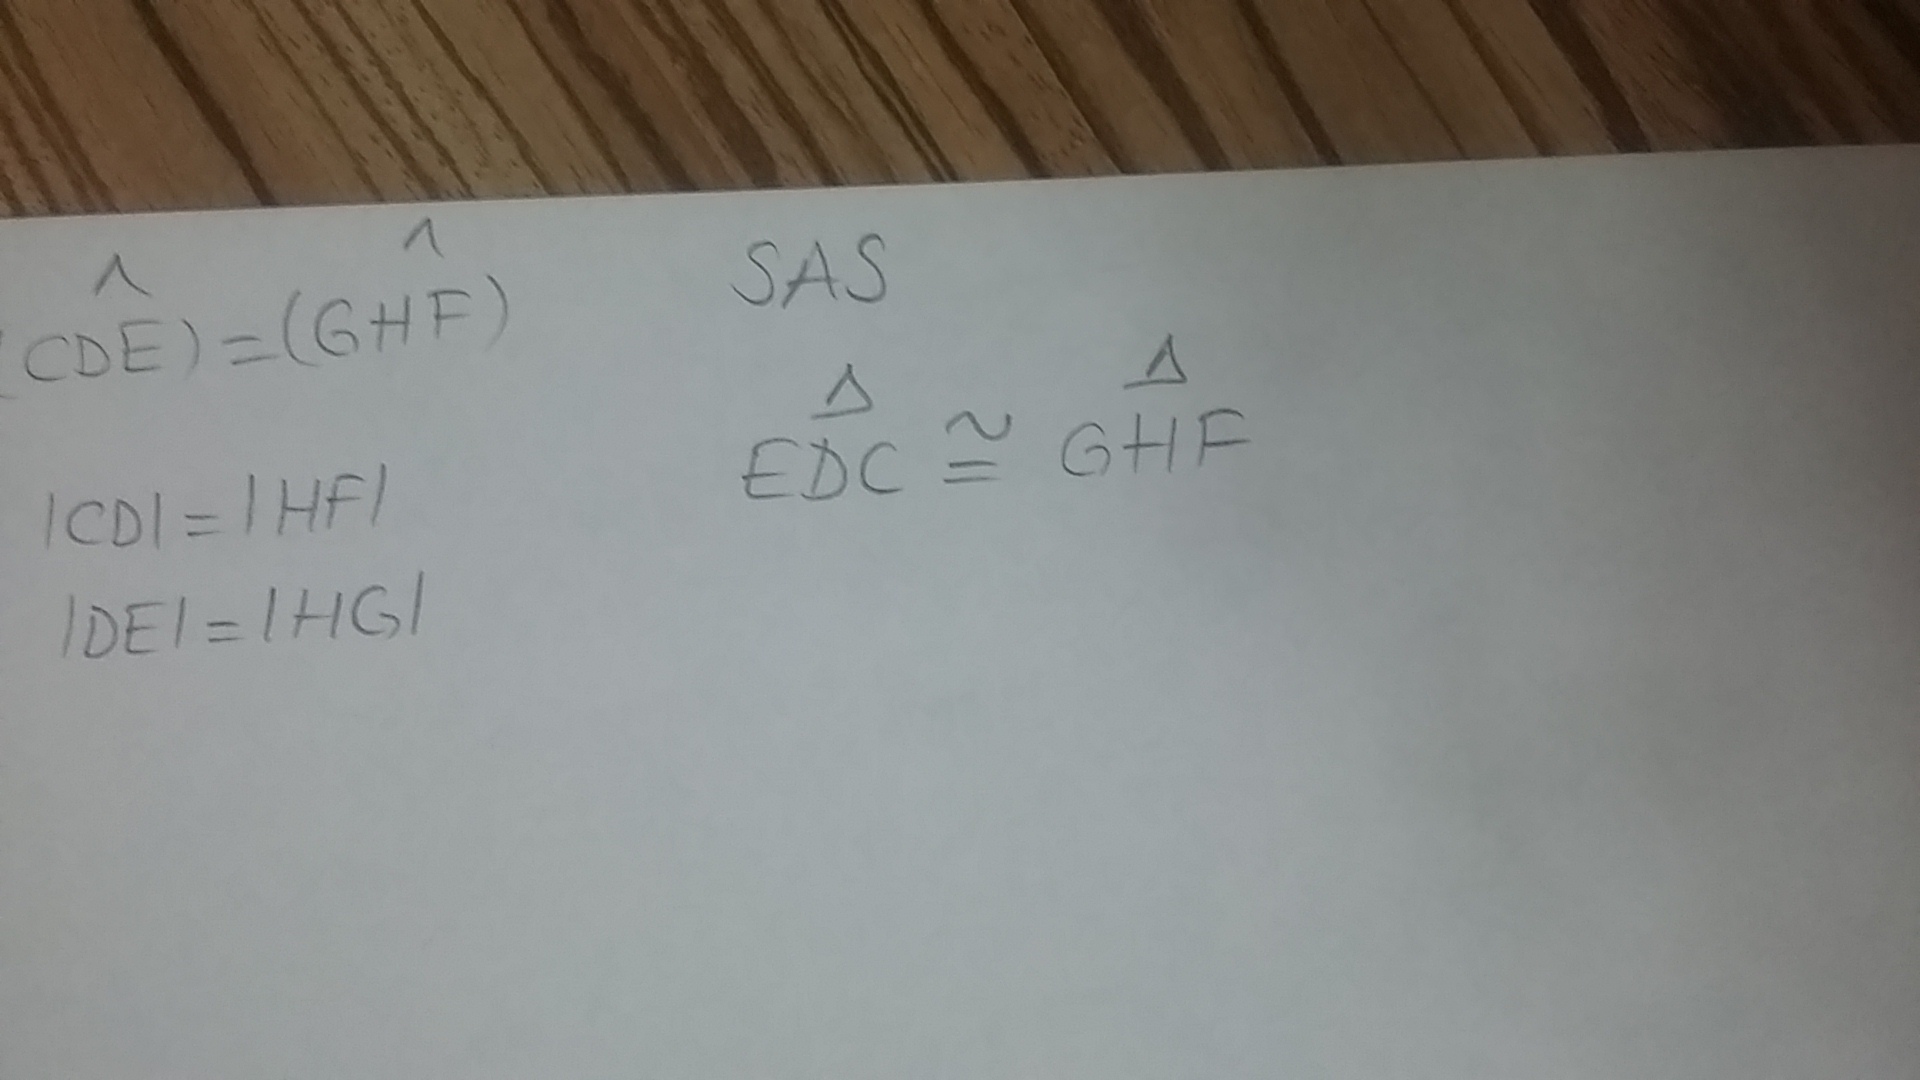 (CDE) = (GHF)
|CD| = |HF|
|DE| = |HG|
SAS
EDC ≅ GHF